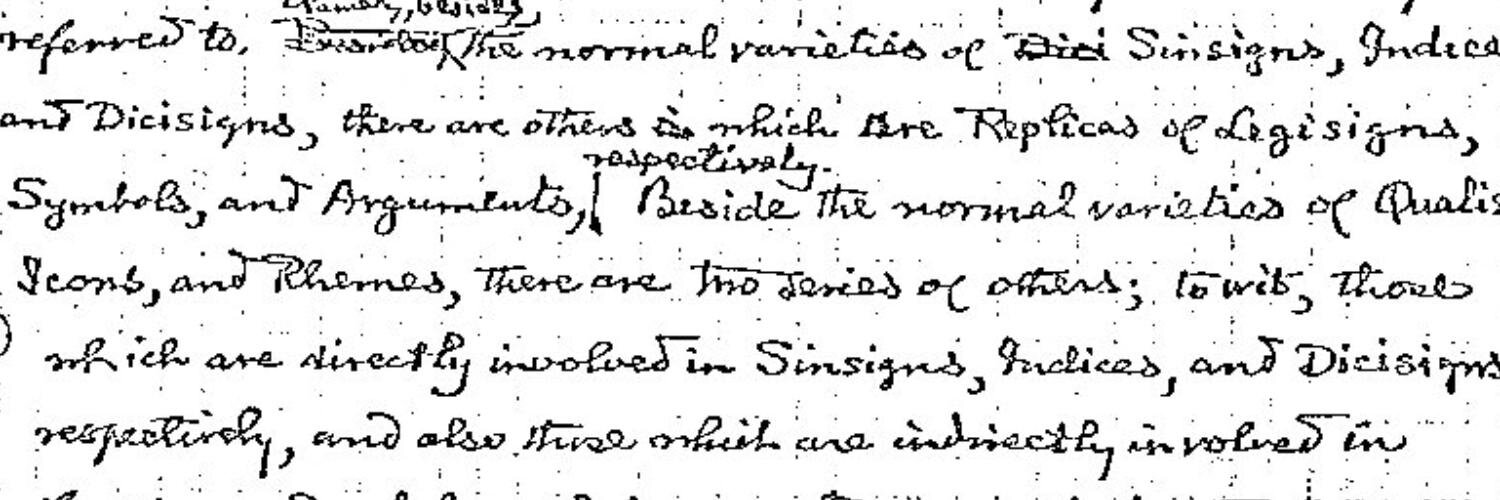 Namely, besides,
referred to. the normal varieties of Dici Sinsigns, Indices
and Dicisigns, there are others in which are Replicas of Legisigns,
respectively.
Symbols, and Arguments, Beside the normal varieties of Qualis
Icons, and Rhemes, there are two series of others; to wit, those
which are directly involved in Sinsigns, Indices, and Dicisigns
respectively, and also those which are indirectly involved in